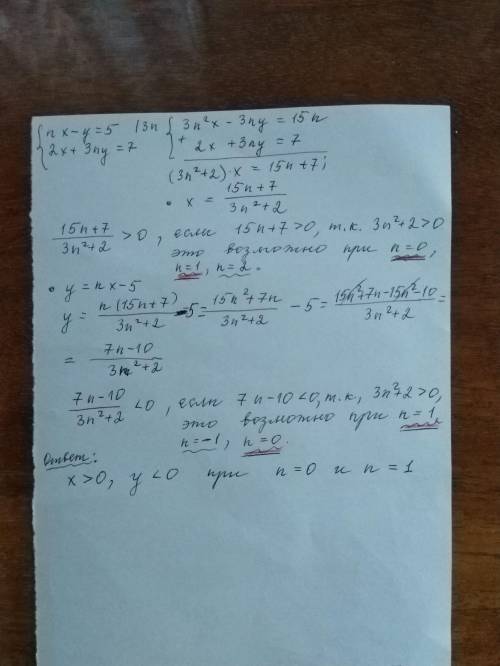 {nx-y=5 |3n {3n²x-3ny=15n
{2x+3ny=7 + {2x+3ny=7
(3n²+2)·x=15n+7;
• x = (15n+7)/(3n²+2)
(15n+7)/(3n²+2) > 0, если 15n+7>0, т.к. 3n²+2>0
это возможно при n=0,
n=1, n=2.
• y=nx-5
y = n(15n+7)/(3n²+2) -5 = (15n²+7n)/(3n²+2) - 5 = (15n²+7n-15n²-10)/(3n²+2) =
= (7n-10)/(3n²+2)
(7n-10)/(3n²+2) < 0, если 7n-10<0, т.к. 3n²+2>0,
это возможно при n=1
n=-1, n=0.
Ответ:
x>0, y<0 при n=0 и n=1